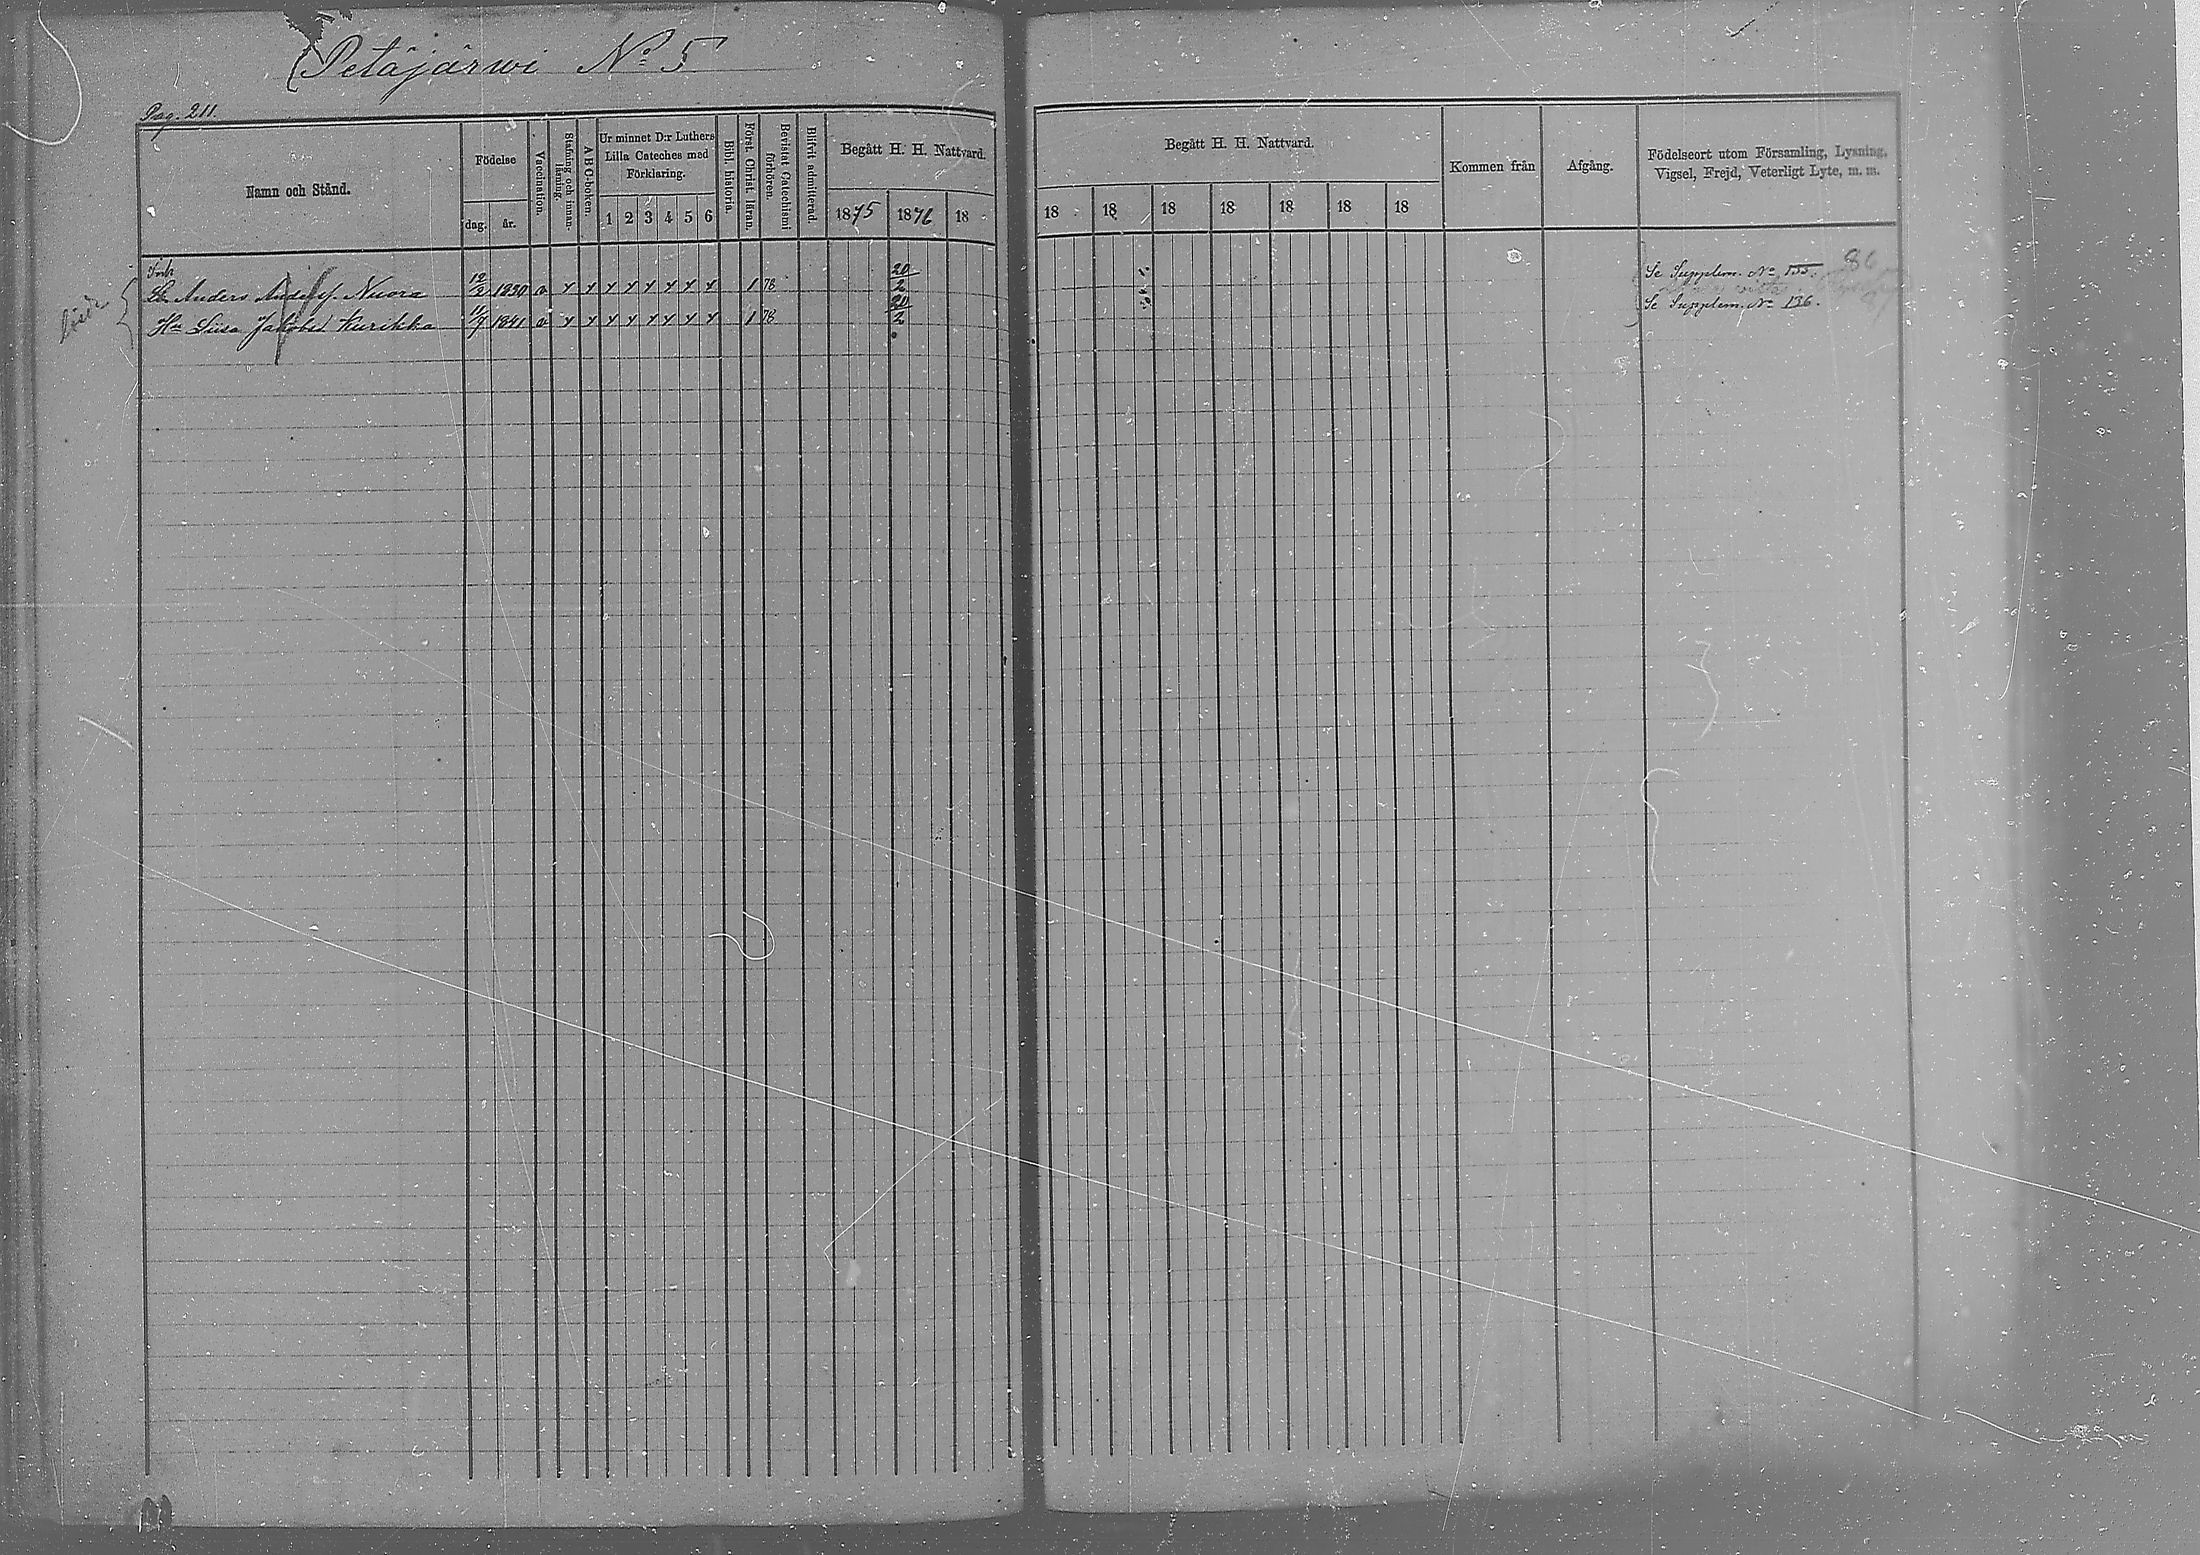 Petäjärwi No 5
Pag. 211.
Namn och Stånd.
Födelse
dag.
år.
Vaccination.
Stafning och innan-läsning.
A B C-boken.
Ur minnet D:r Luthers Lilla Cateches med Förklaring.
1 2 3 4 5 6
Bibl. historia.
Först. Christ. läran.
Bevistat Catechismi förhören.
Blifvit admitterad.
Begått H. H. Nattvard.
1875 1876 18
Begått H. H. Nattvard.
18 18 18 18 18 18 18
Kommen från
Afgång.
Födelseort utom Församling, Lysning, Vigsel, Frejd, Veterligt Lyte, m. m.
Inh
Anders Andersf. Nuora 12/3 1839 v y y y y y y y y 1 78 20/2 Se Supplem. No 155. 86
Hu Liisa Jakobsd Kurikka 11/7 1841 v y y y y y y y y 1 78 20/2 Se Supplem. No 136.